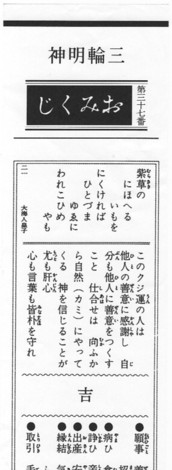 三輪明神
第三十七番
おみくじ
紫草の
にほへる
いもを
にくければ
ひとづま
ゆゑに
われこひめ
やも
大海人皇子
二
このクジ運の人は
他人の善意に感謝し 自
分も他人に善意をつくす
こと 仕合せは 向ふか
ら自然（カミ）にやって
くる 神を信じることが
尤も肝心
心も言葉も皆朴を守れ
吉
●願事
●病ひ
●諍ひ
●出産 安
●縁結
●取引